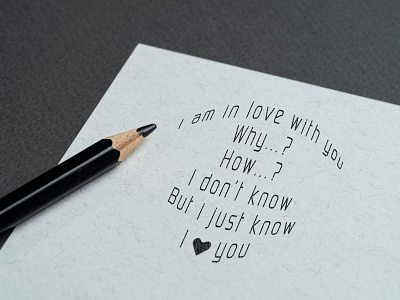 I am in love with you
Why...?
How...?
I don't know
But I just know
I ♥ you